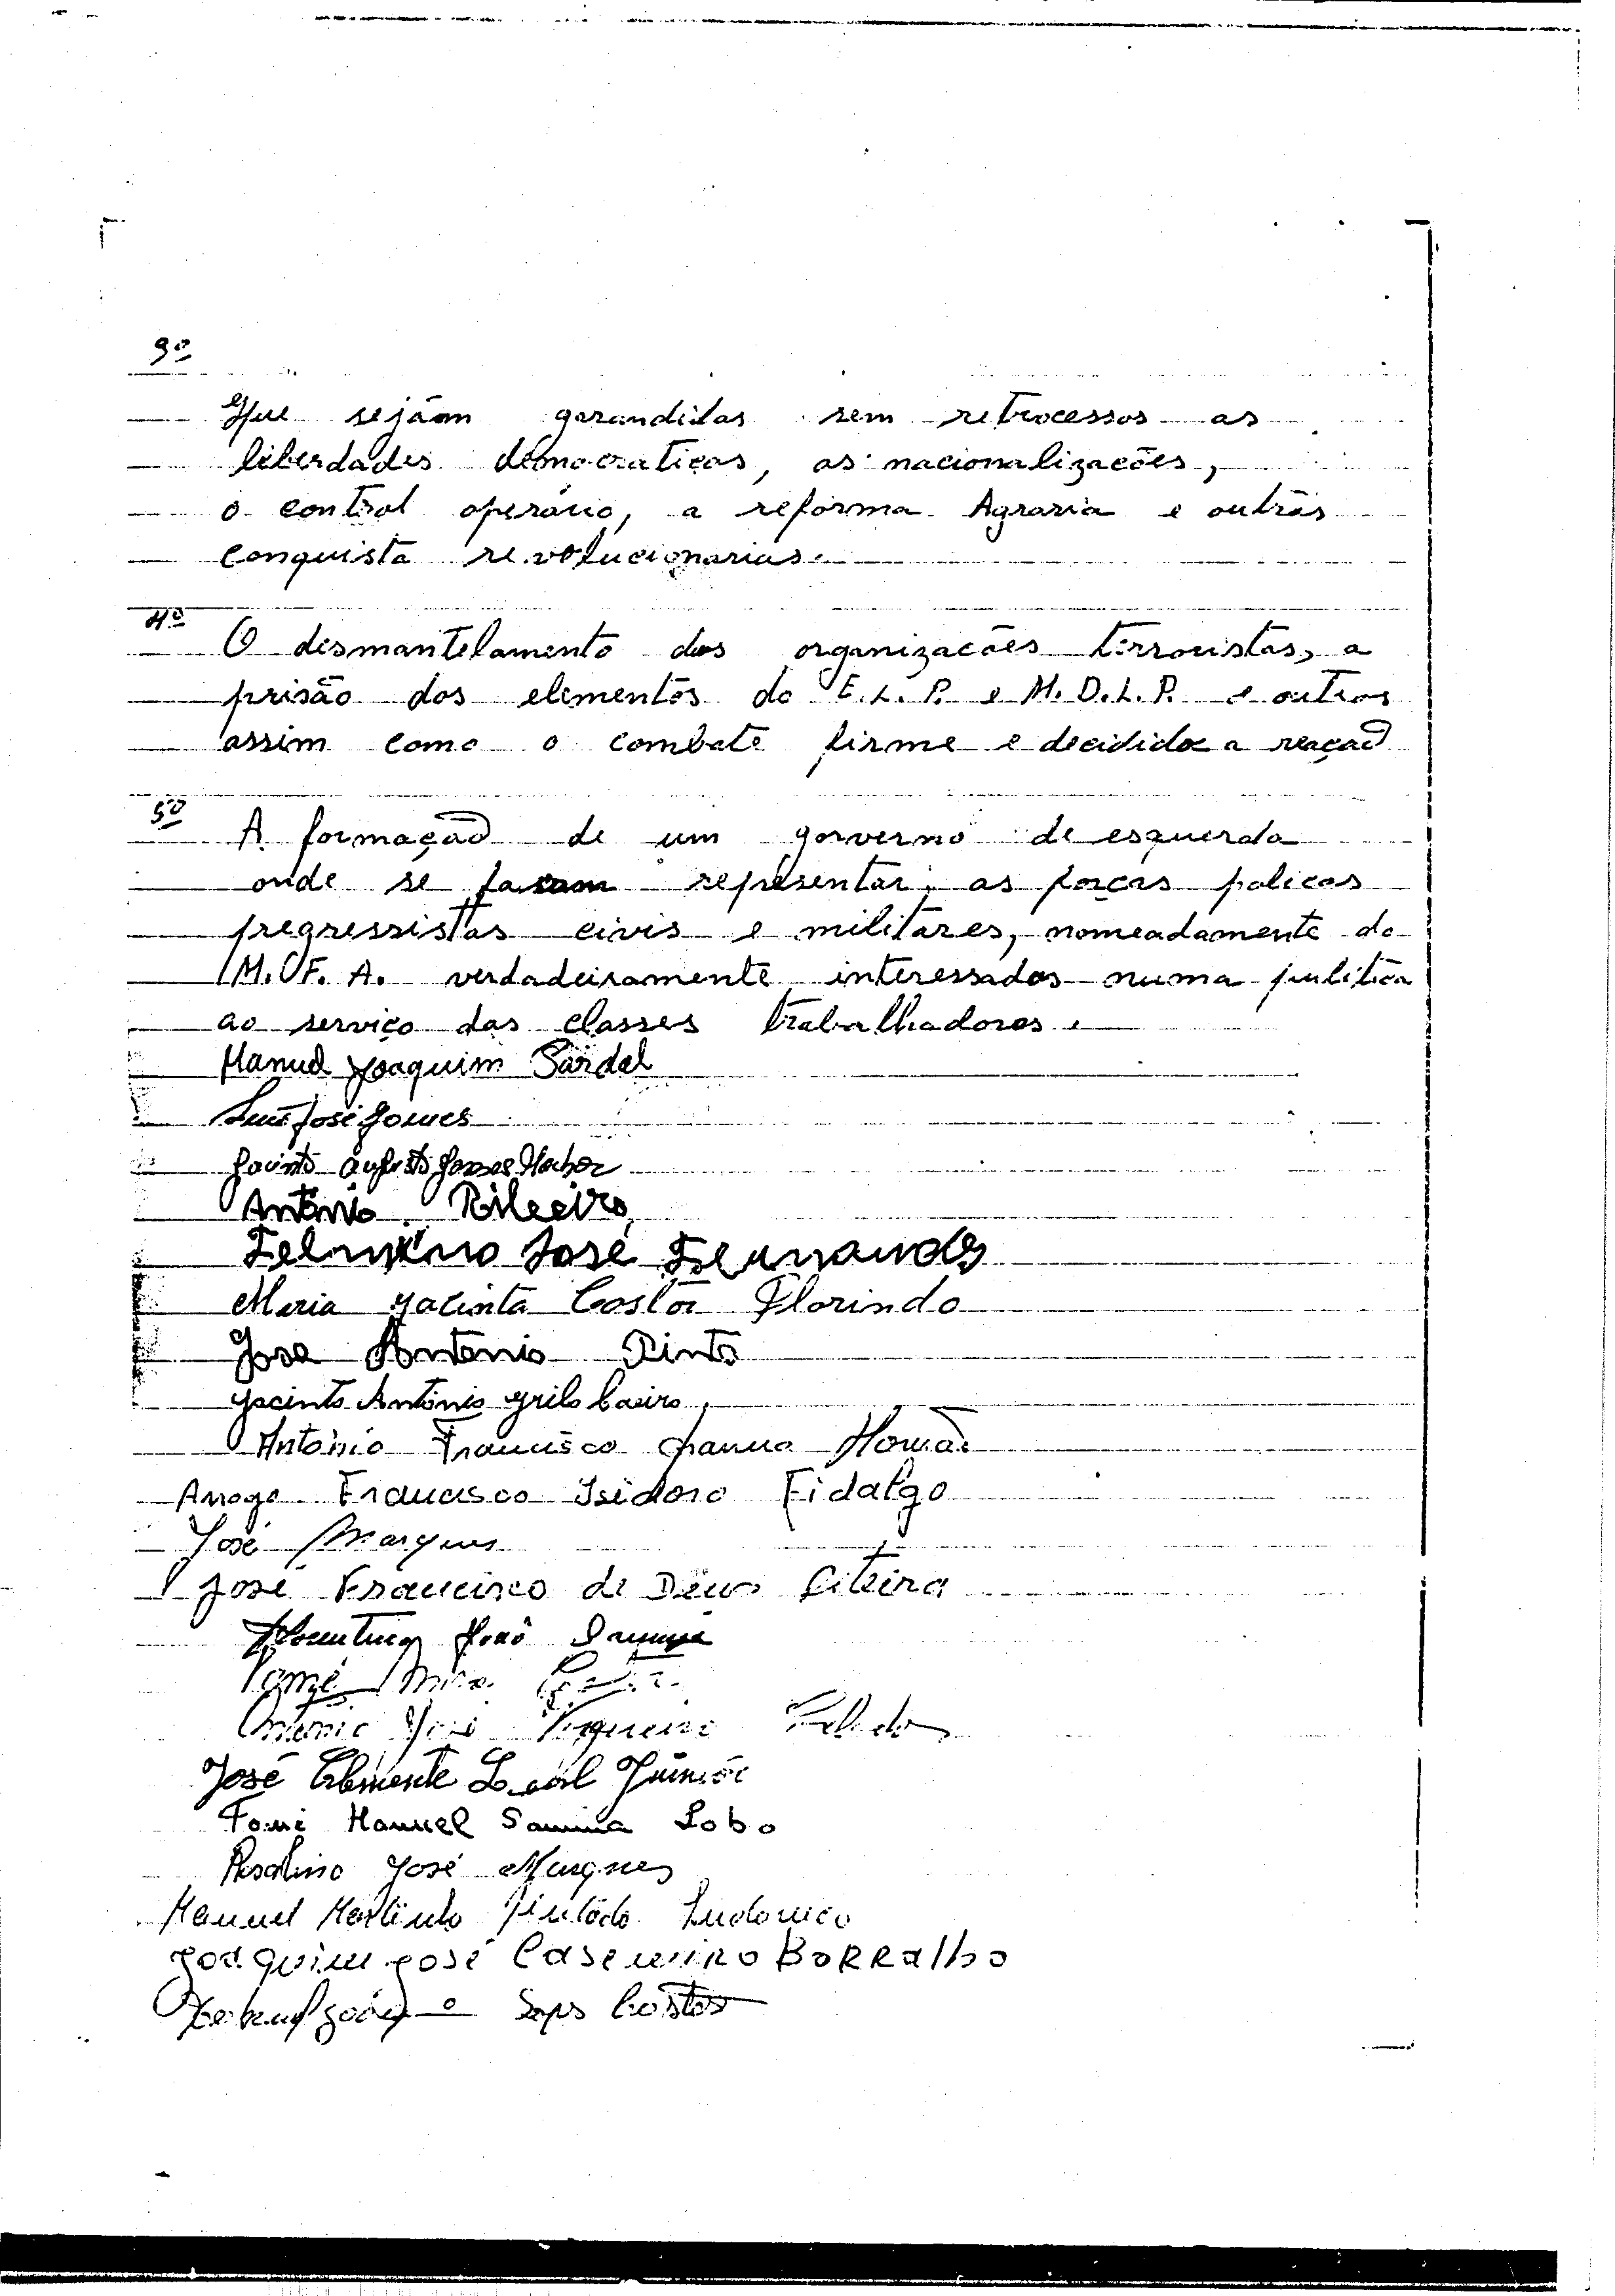 3º
Que sejãm garandidas sem retrocessos as
liberdades democraticas, as nacionalizacões,
o control operário, a reforma Agraria e outras
conquista revolucionarias.
4º
O desmantelamento das organizacões terroristas, a
prisão dos elementos do E.L.P. e M.D.L.P. e outros
assim como o combate firme e decidido a reaçaõ
5º
A formaçaõ de um governo de esquerda
onde se facam representar, as forças policas
pregressistas civis e militares, nomeadamente do
M.F.A. verdadeiramente interessados numa pulitica
ao serviço das classes trabalhadores.
Manuel Joaquim Sardal
Luis José Gomes
Jacinto Augusto
António Ribeiro
José Fernandes
Maria Jacinta Costa Florindo
José Antonio Pinto
Jacinto António Grilo
António Francisco
Francisco Isidoro Fidalgo
José Marques
José Francisco de Deus
João
Tomé
António José
José Clemente
Tomé Manuel Samina Lobo
José Marques
Manuel Martinho Ludovico
Joaquim José Casemiro Borralho
Costa